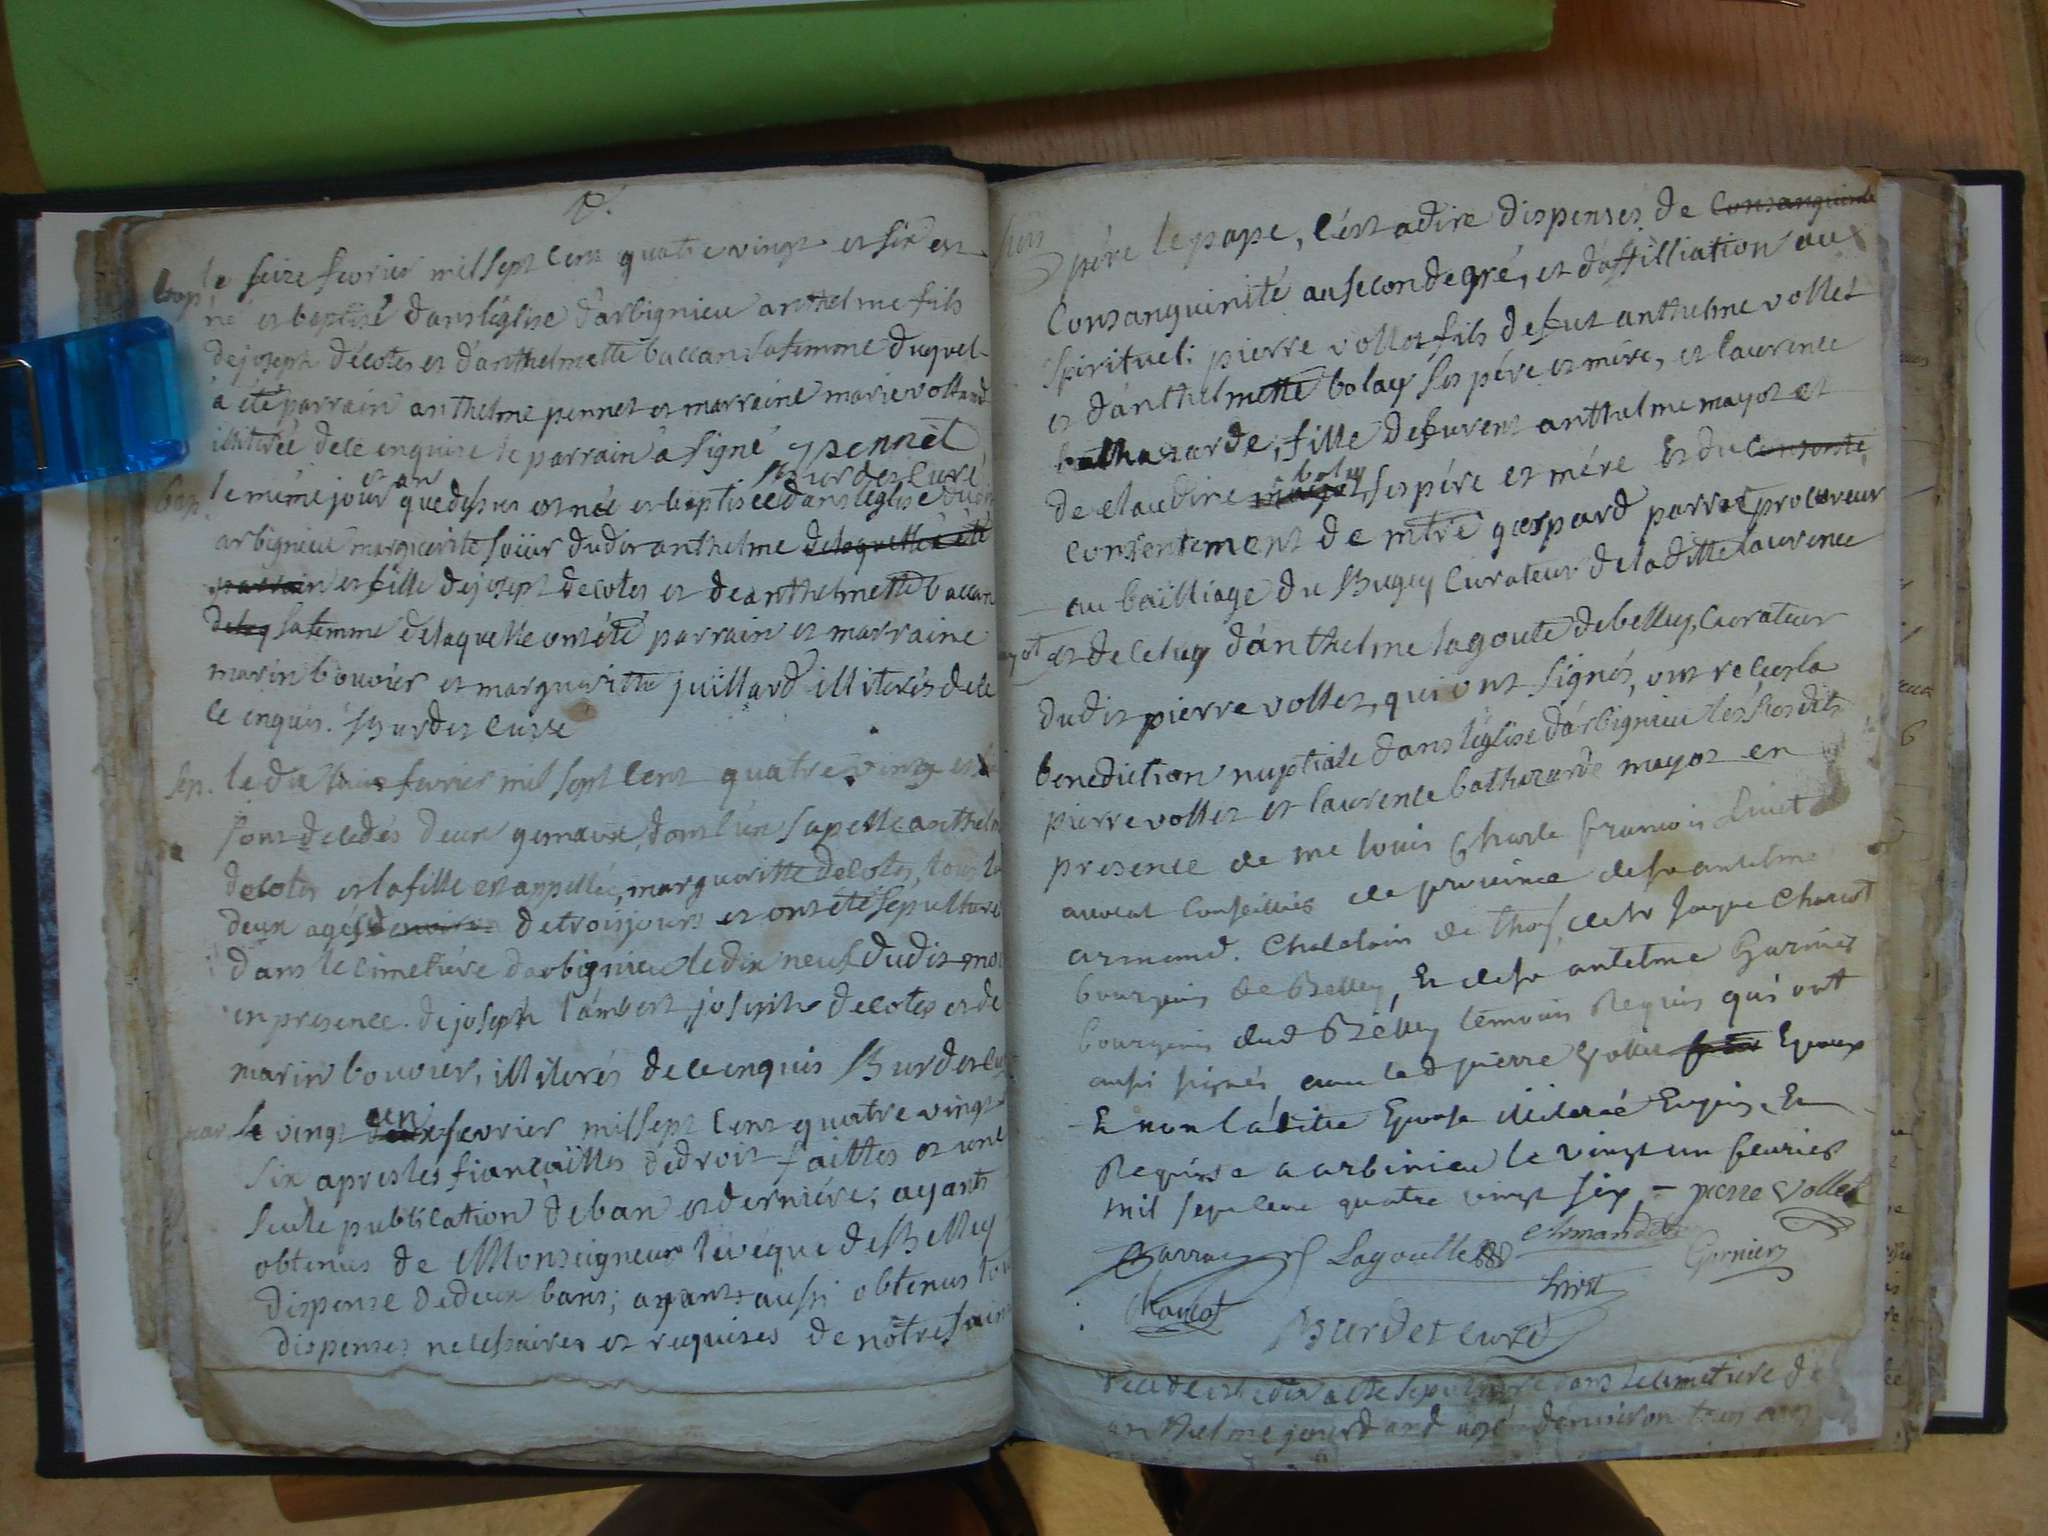 bap. le seize fevrier mil sept cent quatre vingt et six est
né et baptisé dans l'église d'arbignieu anthelme fils
de joseph décotes et d'anthelmette baccan sa femme duquel
à été parrain anthelme pennet et marraine marie volland
illiterée de ce enquise le parrain à signé pennet
Burdet curé
bap. le même jour et an que dessus est née et baptisée dans l'église dudit
arbignieu marguerite sœur dudit anthelme de laquelle a été
parrain et fille de joseph decotes et de anthelmette baccan
delaq sa femme de laquelle ont été parrain et marraine
marin bouvier et margueritte juillard illiterés de ce
ce enquis. Burdet curé
sep. le dix huit fevrier mil sept cent quatre vingt et
sont decedés deux gemaux, dont l'un s'apelle anthelm
decotes et la fille est appellée, margueritte decotes, tous les
deux agés d'environ de trois jours et ont été sepulturé
dans le cimetiére d'arbignieu le dix neuf dudit moi
en presence de joseph lambert, joseph decotes et de
marin bouvier, illiterés de ce enquis Burdet cu
mar. le vingt un fevrier mil sept cent quatre vingt
six apres les fiançailles de droit faittes et une
seule publication de ban et derniére; ayants
obtenus de Monseigneur l'evêque de Belley
dispense de deux bans; ayant aussi obtenus tou
dispenses necessaires et requises de nôtre sain
pére le pape, c'est a dire dispenses de Consanguinité
Consanguinité au second degré, et d'affilliation au
spirituel: pierre vollet fils de fut anthelme vollet
et d'anthelmette bolay ses pére et mére, et laurence
balthazarde, fille de furent anthelme mayot et
de claudine mayot bolay, ses pére et mére et du Consente
consentement de mtre gaspard parrat procureur
au bailliage du Bugey Curateur de la ditte laurence
mayot et de celuy d'anthelme lagoute de belley, curateur
dudit pierre vollet, qui ont signés, ont reçus la
benediction nuptiale dans l'église d'arbignieu les susdits
pierre vollet et laurence balthazarde mayot en
presence de me louis Charle francois
avocat Conseiller de province de sr antelme
armand. Chatelain de de sr Jaque
bourgeois de Belley, Et de sr antelme Garnier
bourgeois dud Belley temoins Requis qui ont
aussi signés avec led pierre Vollet Epoux
Et non la ditte Epouse illiterée Enquise Et
Requise a arbinieu le vingt un fevrier
mil sept cent quatre vingt six, - pierre Vollet
Parrat Lagoutte Armand
Garnier
Burdet curé
decedé et le dix a été sepulturé dans le cimetiere d
anthelme jourdand agé d'environ trois ans